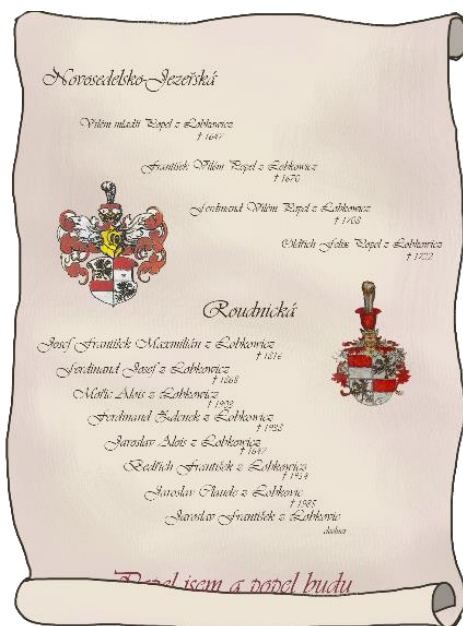 Novosedelsko-Jezeřská
Vilém mladší Popel z Lobkowicz
† 1647
František Vilém Popel z Lobkowicz
† 1670
Ferdinand Vilém Popel z Lobkowicz
† 1708
Oldřich Felix Popel z Lobkowicz
† 1722
Roudnická
Josef František Maxmilián z Lobkowicz
† 1816
Ferdinand Josef z Lobkowicz
† 1868
Mořic Alois z Lobkowicz
Ferdinand Zdenek z Lobkowicz
Jaroslav Alois z Lobkowicz
† 1647
Bedřich František z Lobkowicz
† 1954
Jaroslav Claude z Lobkovic
† 1985
Jaroslav František z Lobkovic
Popel jsem a popel budu